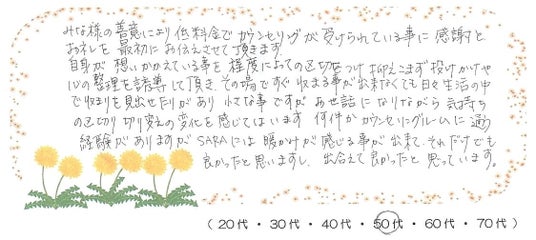 みな様の善意により低料金でカウンセリングが受けられている事に感謝と
お礼を最初にお伝えさせて頂きます。
自身が想いかかえている事を 程度によっての区切をつけ 抑えこまず 投げかけや
心の整理を誘導して頂き、その場ですぐ収まる事が出来なくても 日々生活の中
で収まりを見出せたりがあり 小さな事ですが お世話になりながら 気持ち
の区切り 切り変えの変化を感じてはいます 何件かカウンセリングルームに通
経験がありますが SARAには 暖かけが感じる事が出来、それだけでも
良かったと思いますし、出合えて良かったと思っています。
(20代・30代・40代・50代・60代・70代)